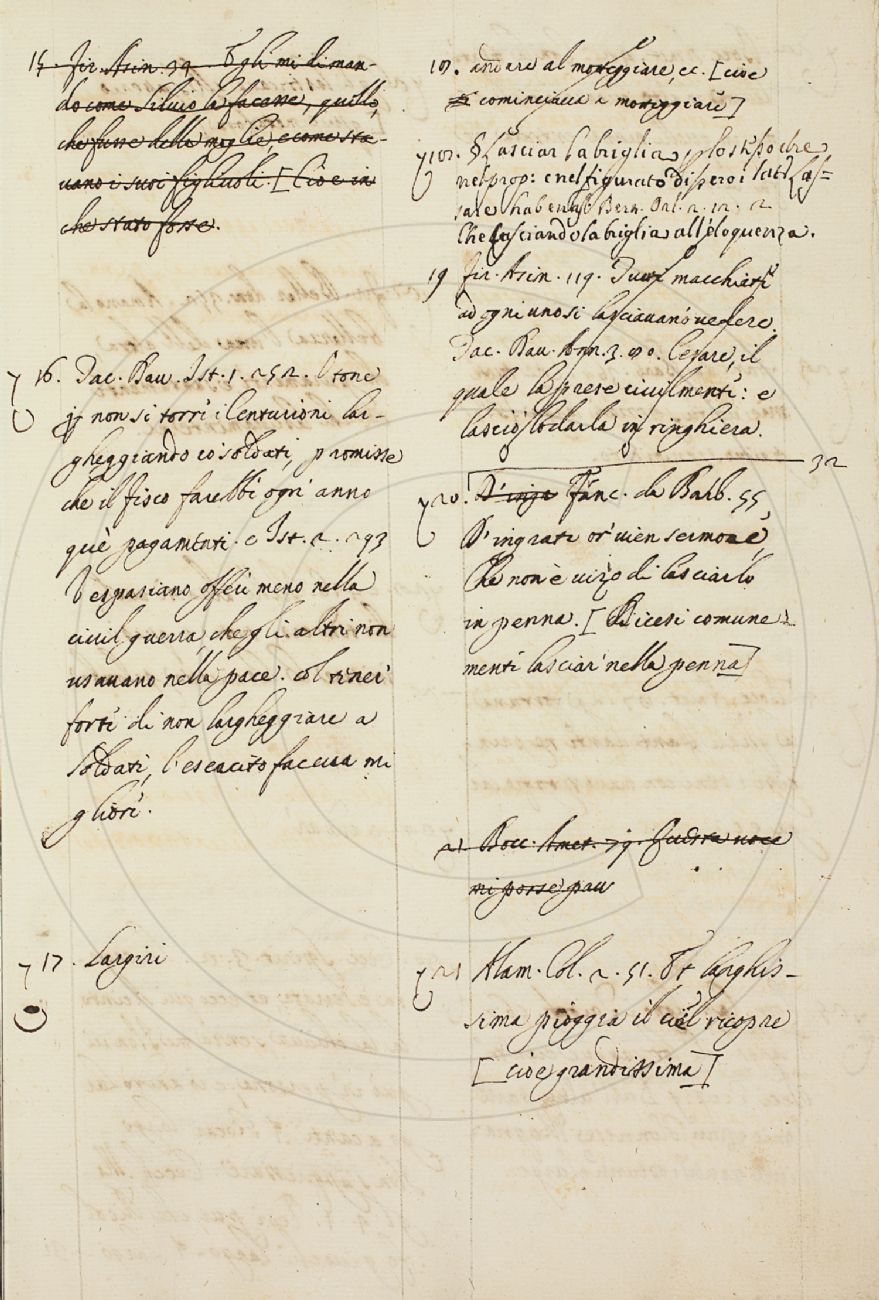 15. Fir. Asin. 39. Egli mi diman-
do come Silvio la facesse, quello,
che fusse della moglie, e come sta-
vano i suoi figliuoli. [Cioè in
che stato fosse.
16. Dac. Dav. Ist. 1. 252. Otone
per non si torre i Centurioni lar-
gheggiando co' soldati, promisse
che il fisco farebbe ogni anno
que' pagamenti. e Ist. 2. 293
Vespasiano offerì meno nella
civil guerra, che gli altri non
usavano nella pace. col tener
forte di non largheggiare a
soldati, l'esercito faceva mi
gliore.
17. Largire
18. andare al moteggiare, ec. [cioè
cominciava a moteggiare]
18. § Lasciar la briglia,
nel prop: e nel figurato
sare habenas Bern. Orl. 2. 12. 2
Che lasciando la briglia all'eloquenza.
19 Fir. Asin. 119. macchiati
ad ogni uno si lasciavano vedere.
Dac. Dav. Ann. 3. 80. Cesare, il
quale la prese civilmente: e
lasciò lodarla in ringhiera.
32
20. D'ingr Franc. da Barb. 55
D'ingrati or' vien sermone,
Che non è vizo di lasciarlo
in penna. [Dicesi comune
mente lasciar' nella penna]
21 Bocc. Amet. 79.
21 Alam. Col. 2. 51. Et larghis-
sima pioggia il ciel ricopre
[cioè grandissima]